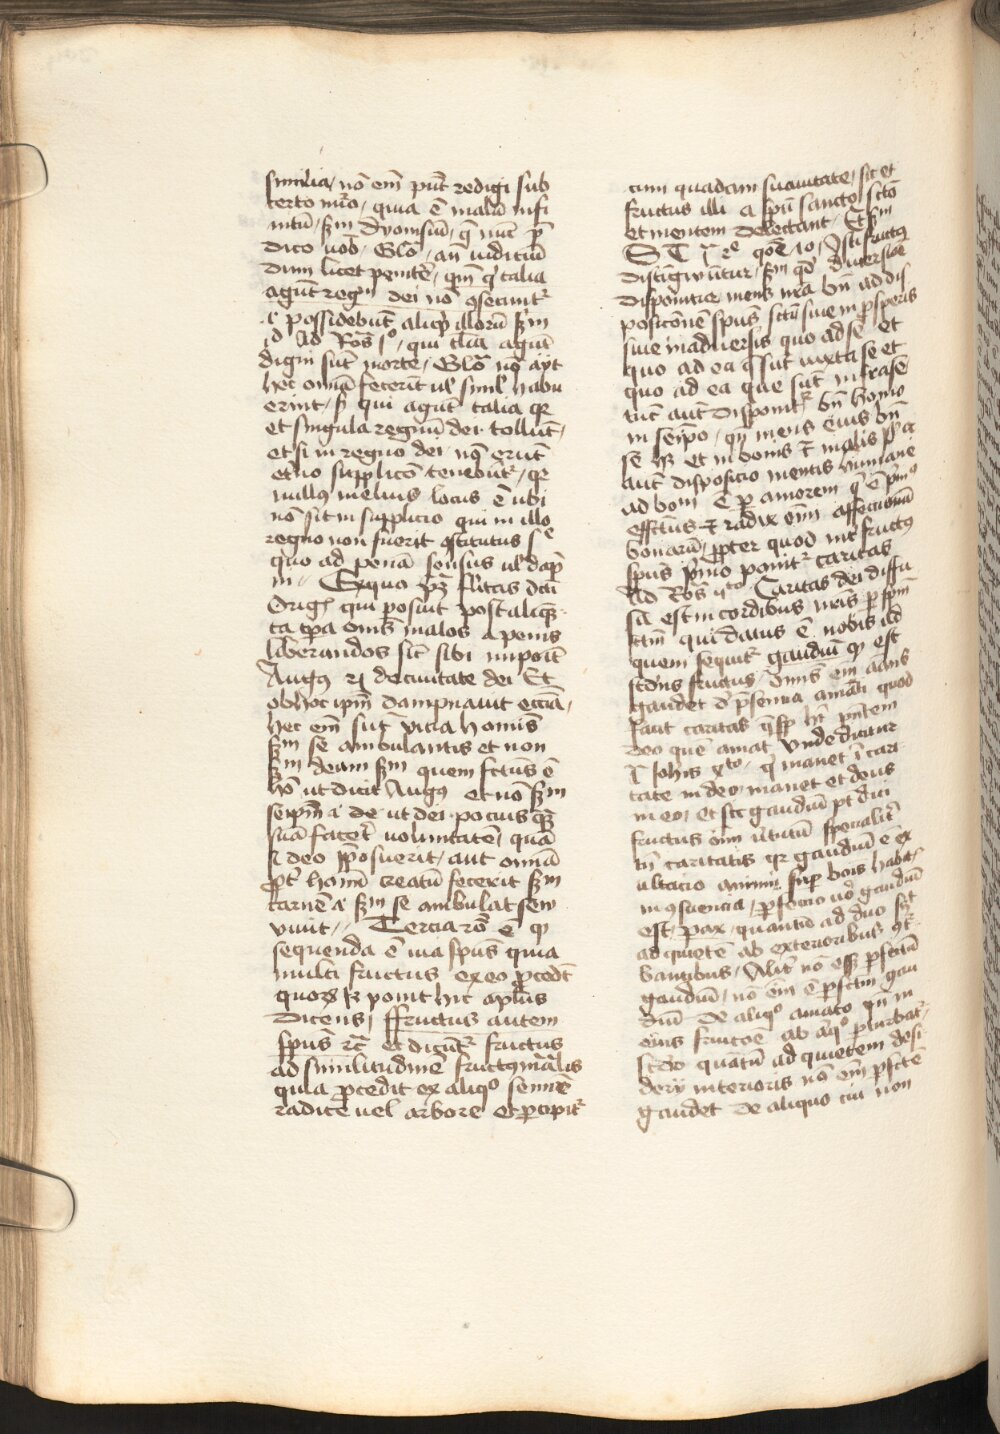 similia / nō em̄ pn̄t redigi sub
certo nūo / quia ē malū infi
nitū / sm̄ dyonisiū / q̄ nūc p̄
dico vob̄ · Glō · an̄ iudiciū
dum licet penitē / qm̄ q̄ talia
agūt regn̄ dei nō ꝯsecūnt᷑
.i. possidebūt aliqꝫ illorū sm̄
id Ad Ro͞s p̊ / qui talia agūt
digni sūt morte / Glō nō ayt
hec om̄ia fecerīt ul' simul habu
erint / sꝫ qui agūt talia qꝛ
et singula regnū dei tollūt /
et si in regno dei nō erūt
etn̄o supplicō tenebūt᷑ / qꝛ
nullꝯ melius locus ē ubi
nō sit in supplicio qui in illo
regno non fuerit ꝯstitutus sꝫ
quo ad penā sensus ul' dāp
ni / Ex quo pꝫ falsitas dcī
Origꝫ qui posuit post aliqꝫ
ta tp̄a om̄s malos a penis
liberandos sic̄ sibi imponit
Augꝯ xxj de ciuitate dei Et
ob hoc ip̄m dampnauit ecc̄ia /
hec em̄ sūt vicia hominis
sm̄ se ambulantis et non
sm̄ deum sm̄ quem fctūs ē
hō ut dicit Augꝯ et nō sm̄
seip̄m .i. de ut dei pocius qꝫ
suā facet᷑ voluntatē / quā
si deo p̄posuerit / aut om̄ia
ꝓpt᷑ homī creatū fecerit sm̄
carnē .i. sm̄ se ambulat seu
viuit / / Tercia rō ē qꝫ
sequenda ē uia spūs quia
multi fructus ex eo ꝓcedūt
quoꝝ xij ponit hic apl̄us
dicens / ffructus autem
spūs etc̄ et dicūt᷑ fructus
ad similitudinē fructꝯ mat̄ialis
quia ꝓcedit ex aliq̊ semīe
radice uel arbore et percipit᷑
cum quadam suauitate / sic et
fructus illi a spū sancto sctō
et mentem delectant · Et sm̄
S T 1ᵃ 2ᵉ qōe 70 / Isti fructꝯ
distigwūtur / sm̄ qd̄ diuersiōe
disponitur mens nrā bn̄ ad dis
posicōnē spūs sctī siue in ꝓsperis
siue in aduersis quo ad se et
quo ad ea q̄ sūt iuxta se et
quo ad ea que sūt infra se
tūc aut̄ disponit᷑ bn̄ homo
in seip̄o / qn̄ mens eius bn̄
se hꝫ et in bonis et malis pͥa
aut̄ disposicio mentis humane
ad bonū ē per amorem q̄ ē pͥmꝰ
effctūs et radix om̄i affectionū
bonarū / ꝓpter quod int᷑ fructꝯ
spūs pͥmo ponit᷑ caritas
Ad Ro͞s vᵗᵒ / Caritas dei diffu
sa est in cordibus nr̄is per spm̄
sctm̄ qui datus ē nobis ad
quem sequit᷑ gaudiū qꝫ est
scd̄us fructus / Om̄is em̄ amās
gaudet d' p̄sencia amati quod
faut caritas q̄ sꝑ hꝫ pn̄tem
deo quē amat Unde dicitur
1 Joh̄is 4ᵗᵒ / q̄ manet ī cari
tate in deo manet et deus
in eo / et sic gaudiū pt̄ dici
fructus oīm ūtutū specialit᷑
tn̄ caritatis qꝛ gaudiū ē ex
ultacio animi sup bōis habit̄
in ꝯsciencia / ꝑfectio nō gaudiū
est / pax / quantū ad duo sil't
ad quietē ab exterioribus ꝯt᷑
bantibus / Alit᷑ nō ess ꝑfectū
gaudiū / nō em̄ ē ꝑfctm̄ gau
diū de aliq̊ amato qn̄ in
eius fruicōe ab al'q̊ ꝑturbat᷑
scd̄o quātū ad quietem desi
derij interioris nō em̄ ꝑfctē
gaudet de aliquo cui non